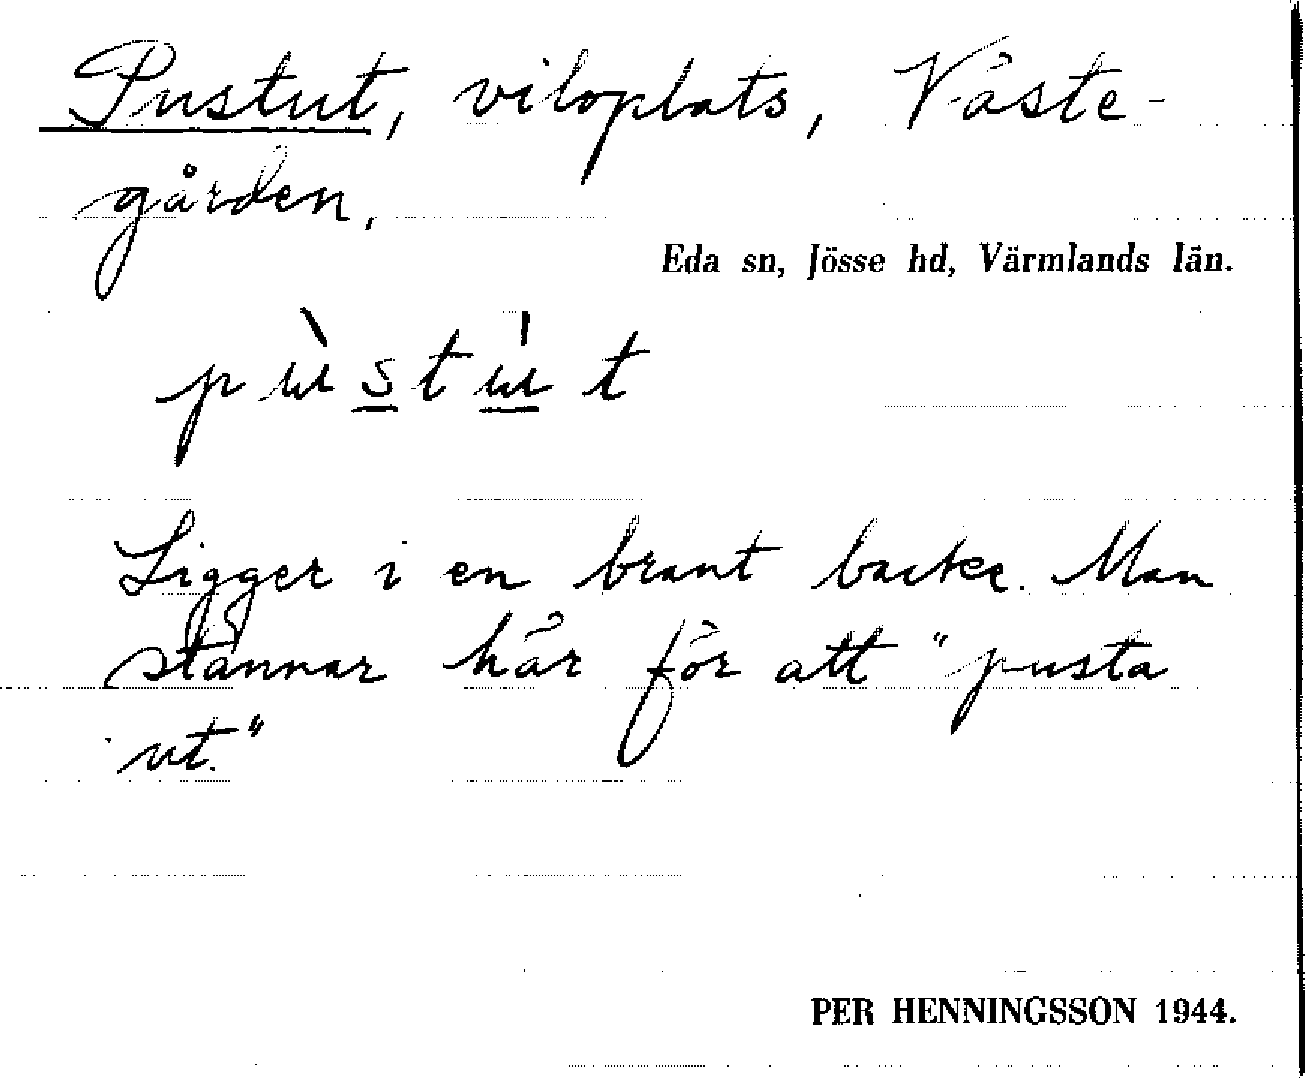 Pustut, viloplats, Väste-
gården,
Eda sn, Jösse hd, Värmlands län.
pùstút
Ligger i en brant backe. Man
stannar här för att "pusta
ut."
PER HENNINGSSON 1944.